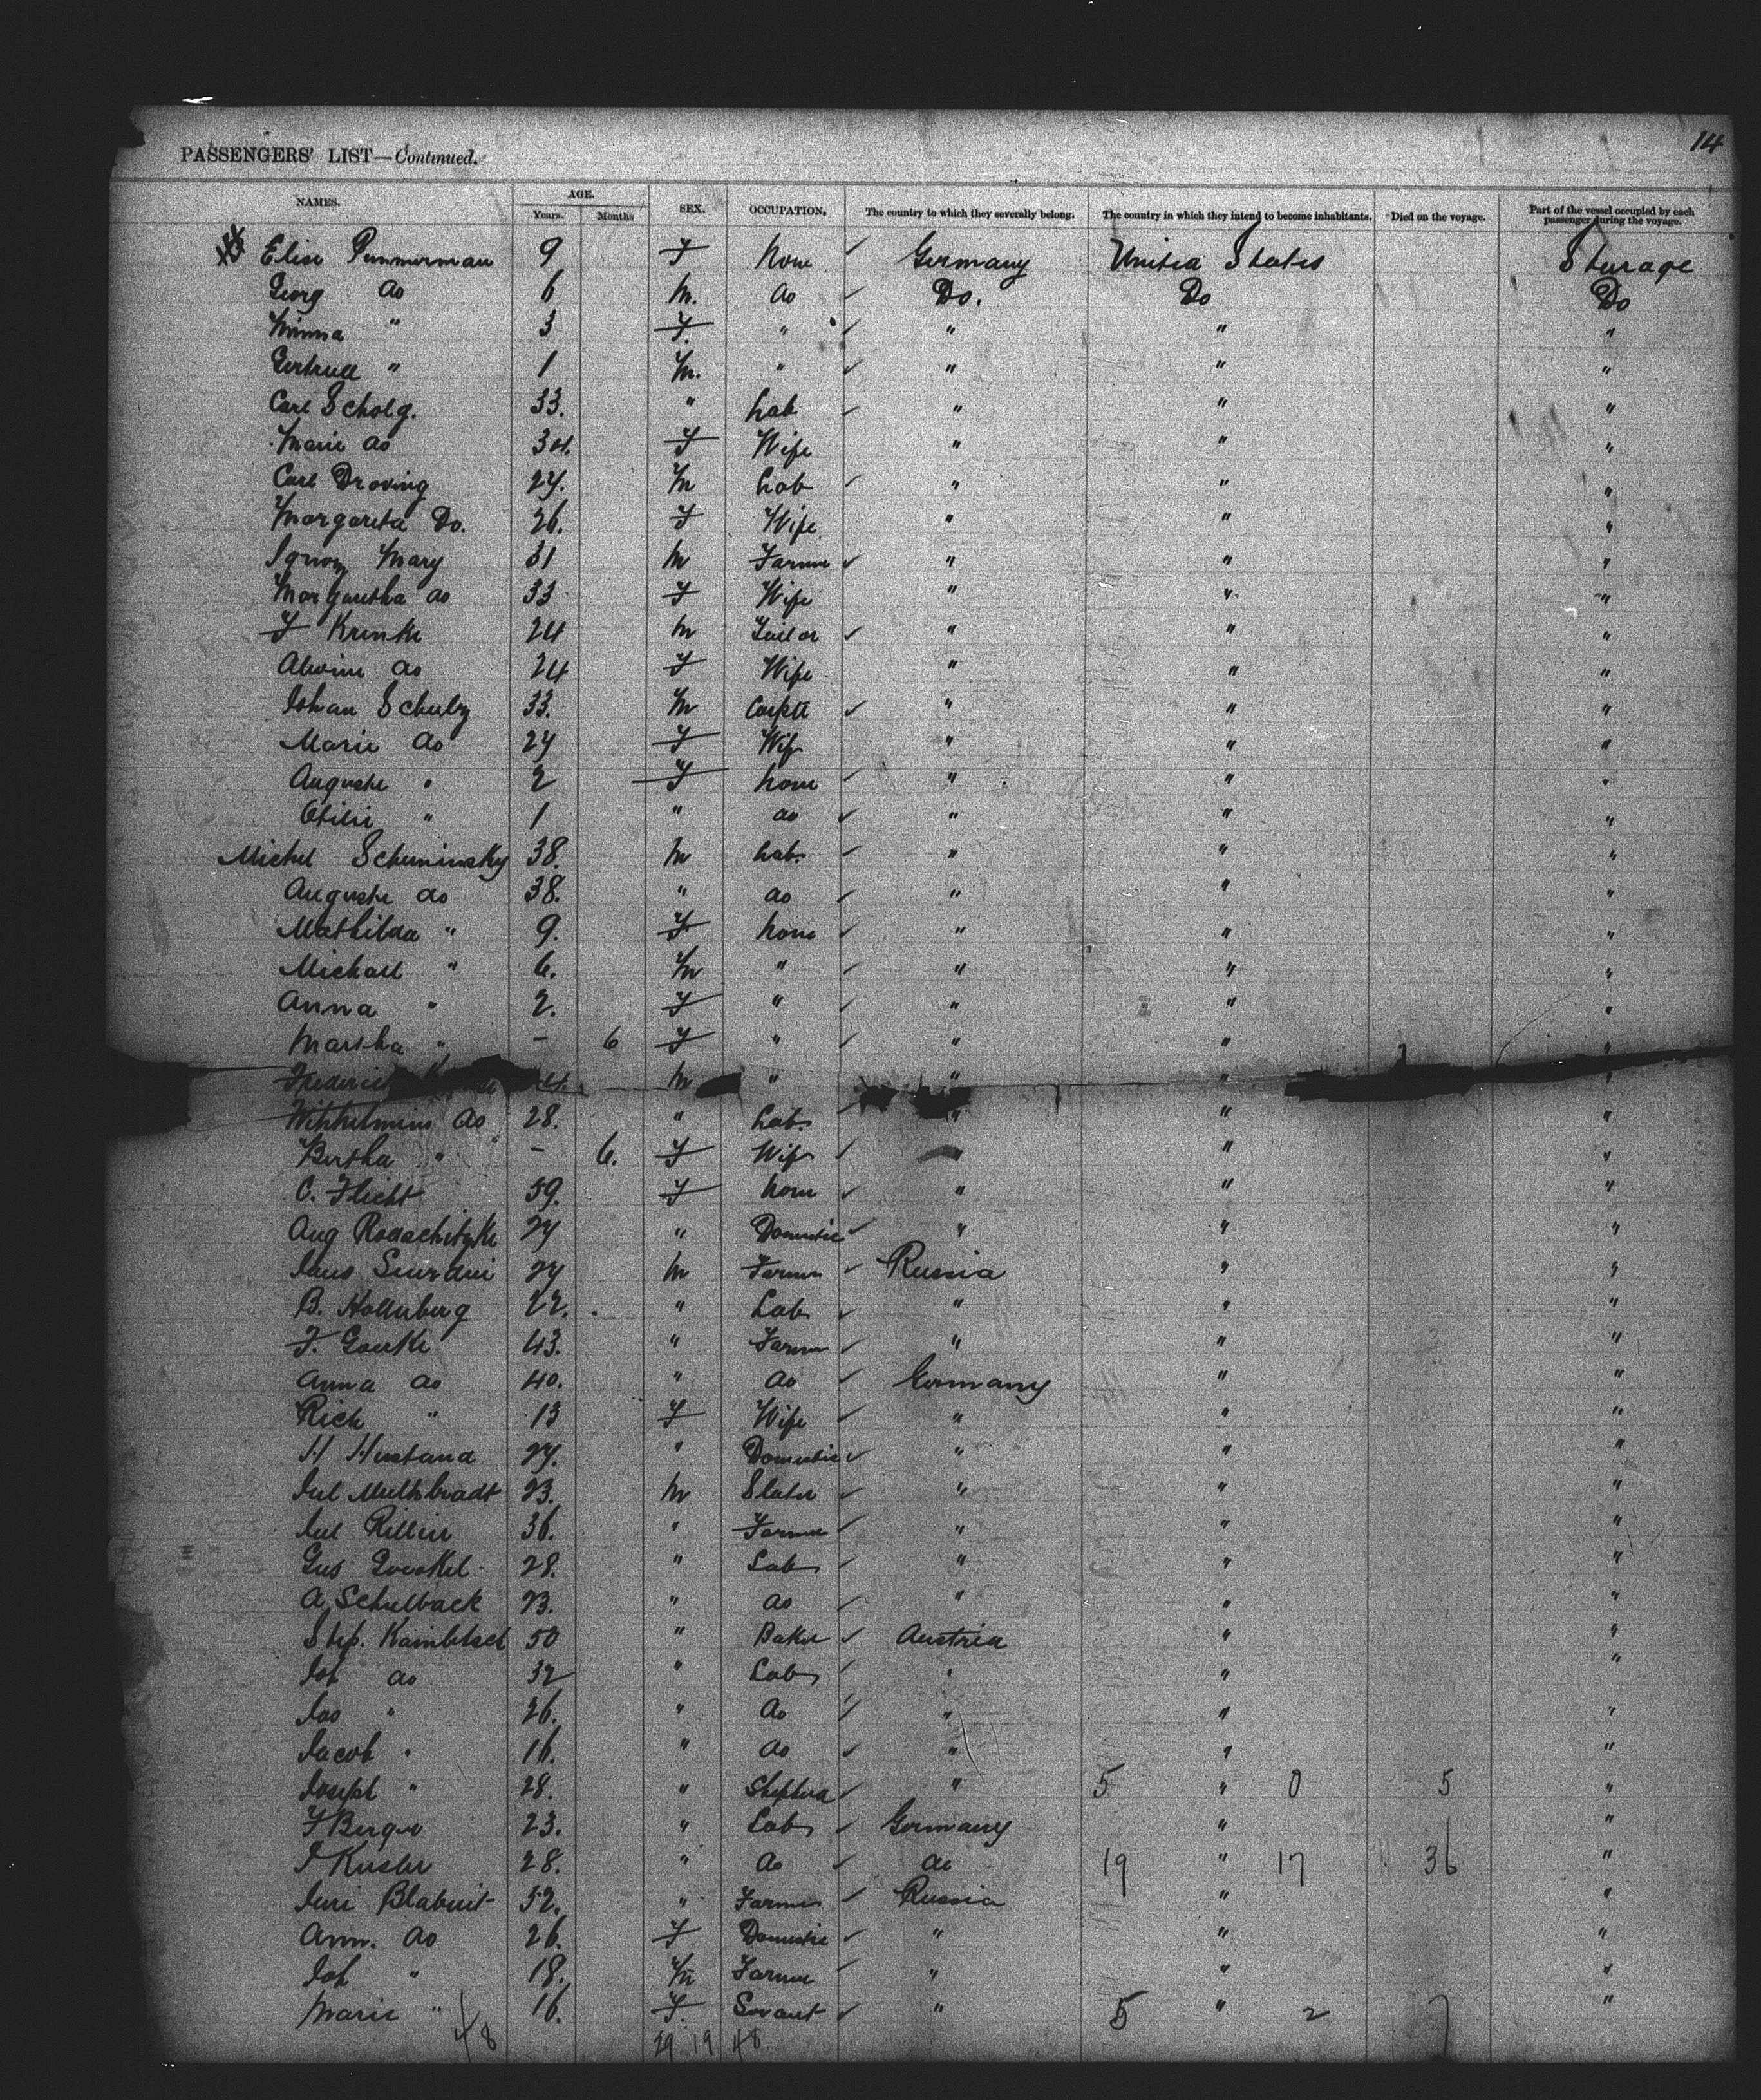 14
PASSENGERS' LIST—Continued.
NAMES. AGE. Years. Months SEX. OCCUPATION. The country to which they severally belong. The country in which they intend to become inhabitants. Died on the voyage. Part of the vessel occupied by each passenger during the voyage.
Elise Pummerman 9 F None Germany United States Sturage
Georg do 6 M. do Do. Do Do
Minna " 3 F. " " " "
Gertrud " 1 M. " " " "
Carl Scholz. 33. " Lab " " "
Marie do 34. F Wife " " "
Carl Droving 27. M Lab " " "
Margareta Do. 26. F Wife " " "
Mary 31 M Farmer " " "
Margaretha do 33 F Wife " " "
F Krinke 24 M Tailor " " "
Alwine do 24 F Wife " " "
Johan Schulz 33. M " " "
Marie do 27 F Wife " " "
Auguste " 2 F None " " "
Otilie " 1 " do " " "
Michel Scheminsky 38. M Lab. " " "
Auguste do 38. " do " " "
Mathilda " 9. F None " " "
Michael " 6. M " " " "
Anna " 2. F " " " "
Martha " - 6 F " " " "
Frederick M " " " "
Wilhelmine do 28. " Lab. " " "
Bertha " - 6. F Wife " " "
C. Flicht 59. F None " " "
Aug 27 " Domestic " " "
27 M Farmer Russia " "
B. Hollenberg 22. " Lab " " "
F. Goerke 43. " Farmer " " "
Anna do 40. " do Germany " "
Rich " 13 F Wife " " "
H 27. " Domestic " " "
Jul Muthbradt 23. M Slater " " "
Jul Rillin 36. " Farmer " " "
Gus 28. " Lab " " "
A Schulback 23. " do " " "
Step. Kambitsch 50 " Baker Austria " "
Joh do 32 " Lab " " "
Jos " 26. " do " " "
Jacob " 16. " do " " "
Joseph " 28. " Shepherd " 5 " 0 5 "
F Berger 23. " Lab Germany " "
J Kusler 28. " do do 19 " 17 36 "
Juri 52. " Farmer Russia " "
Ann. do 26. F Domestic " " "
Joh " 18. M Farmer " " "
Marie " 16. F. Servant " 5 " 2 7 "
48 29 19 48